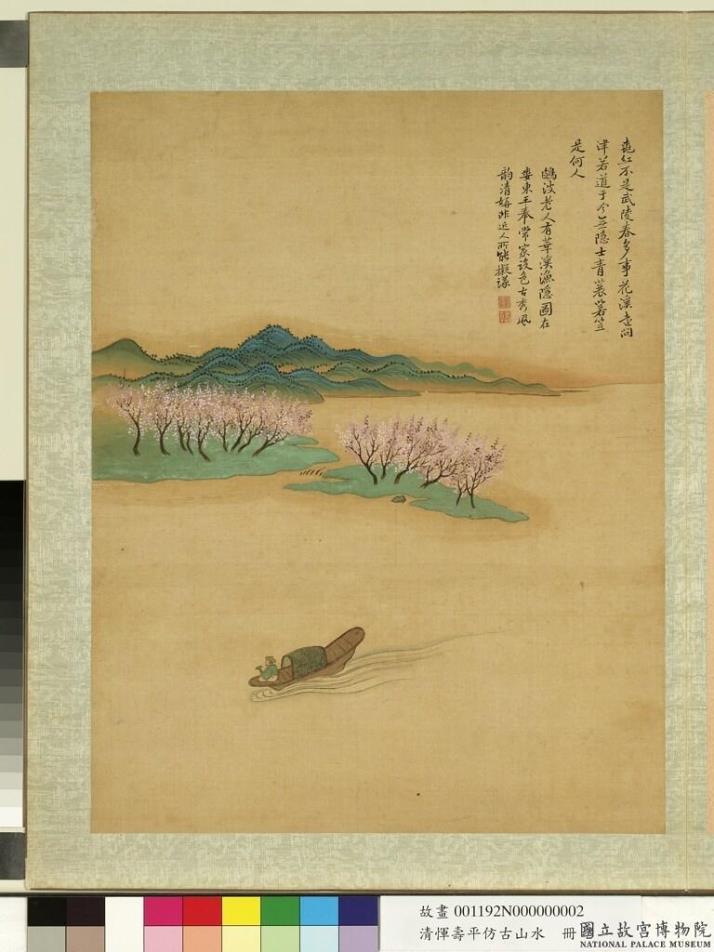 乱红不是武陵春多事花溪去问
津若道于今無隐士青蓑箬笠
是何人
鷗波老人有華溪漁隱圖在
婁東王奉常家設色古秀風
韵清婉非近人所能擬議
故畫 001192N000000002
清惲壽平仿古山水　冊
國立故宮博物院
NATIONAL PALACE MUSEUM